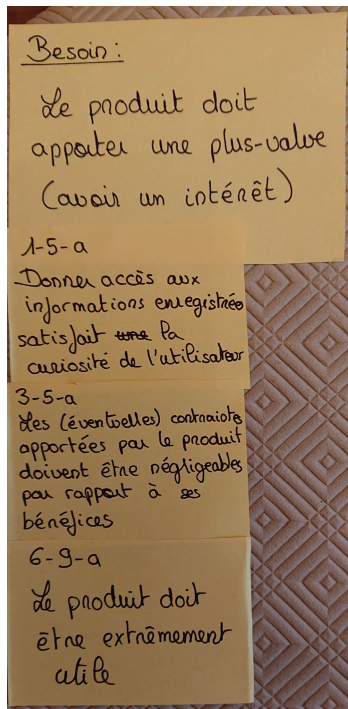 Besoin :
Le produit doit
apporter une plus-value
(avoir un intérêt)
1-5-a
Donner accès aux
informations enregistrées
satisfait une la
curiosité de l'utilisateur
3-5-a
Les (éventuelles) contraintes
apportées par le produit
doivent être négligeables
par rapport à ses
bénéfices
6-9-a
Le produit doit
être extrêmement
utile